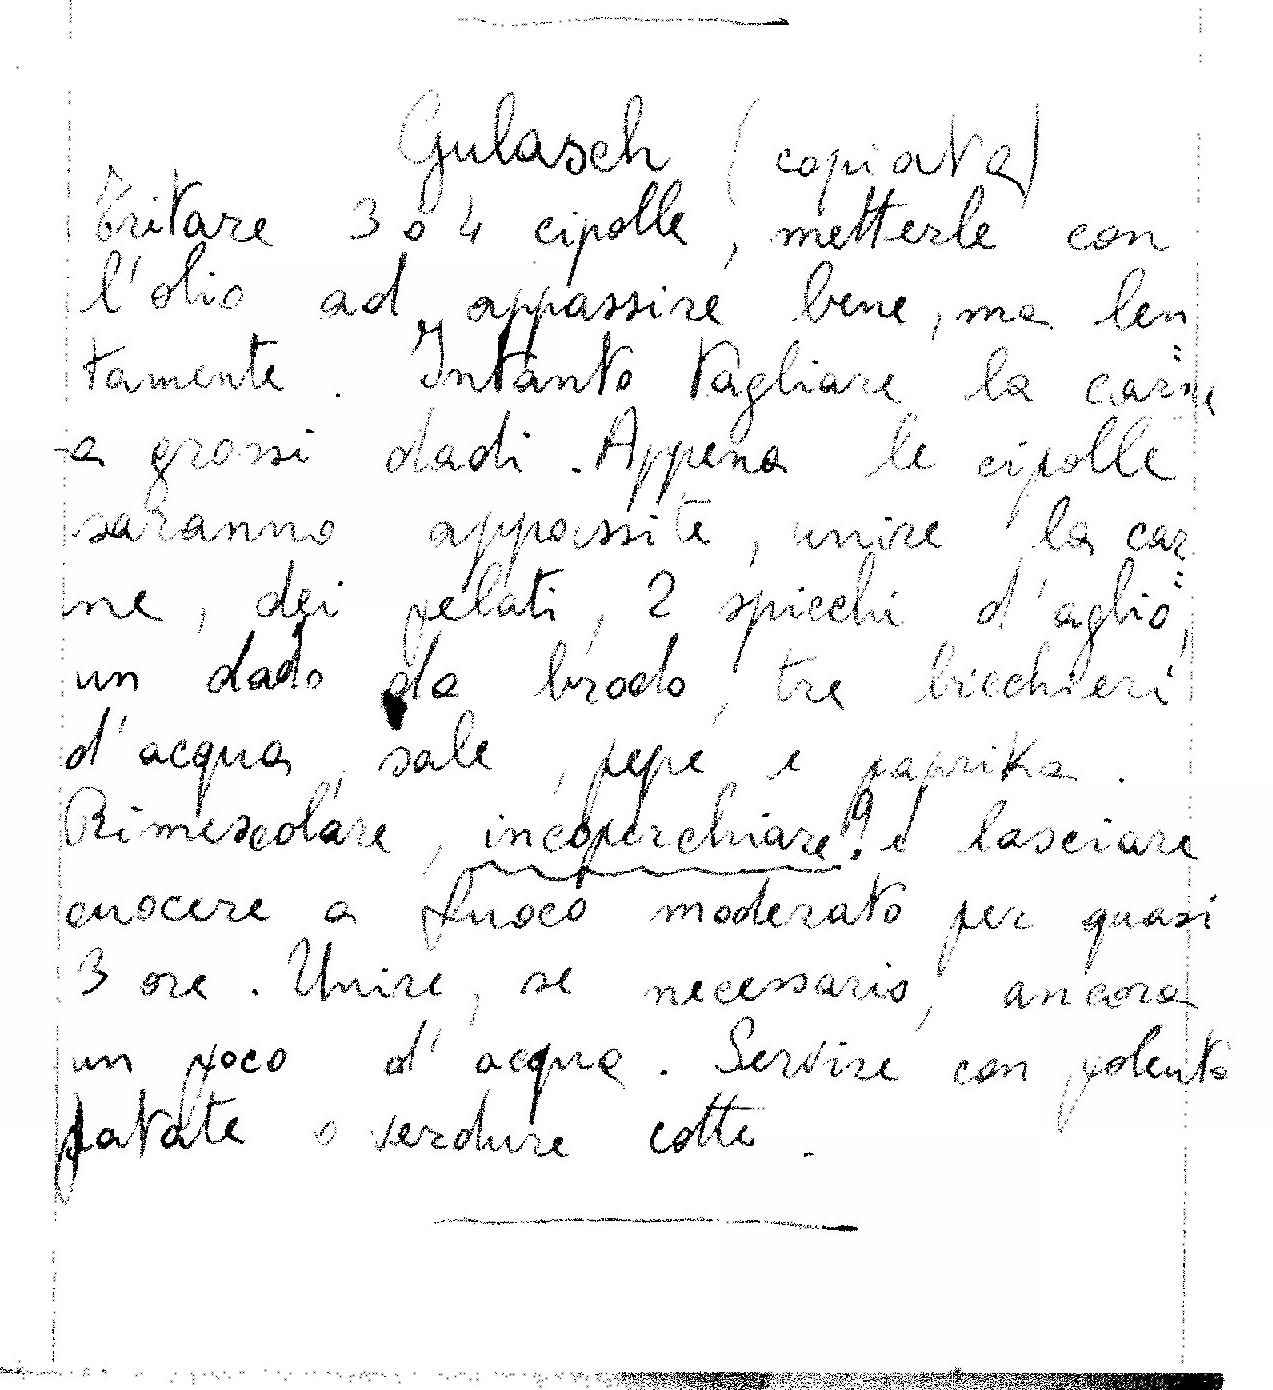 Gulasch (copiata)
Tritare 3 o 4 cipolle, metterle con
l'olio ad appassire bene, ma len=
tamente. Intanto tagliare la carne
a grossi dadi. Appena le cipolle
saranno appassite, unire la car=
ne, dei pelati, 2 spicchi d'aglio,
un dado da brodo, tre bicchieri
d'acqua, sale, pepe e paprika.
Rimescolare, incoperchiare! e lasciare
cuocere a fuoco moderato per quasi
3 ore. Unire, se necessario, ancora
un poco d'acqua. Servire con polenta
patate o verdure cotte.